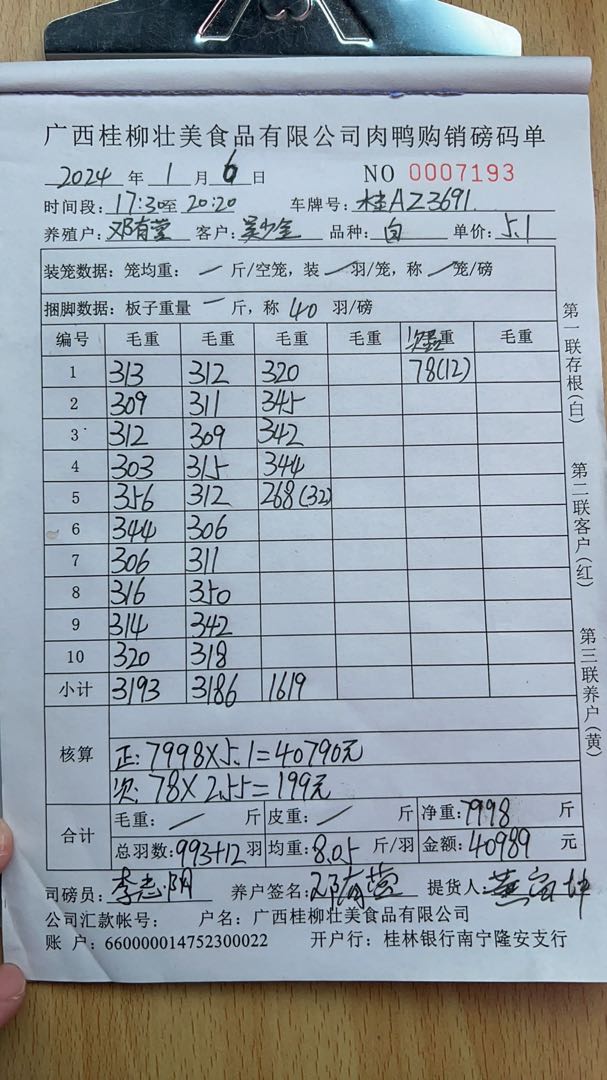 广西桂柳壮美食品有限公司肉鸭购销磅码单
2024 年 1 月 6 日 NO 0007193
时间段: 17:30至 20:20 车牌号: 桂AZ3691
养殖户: 邓有莹 客户: 吴少全 品种: 白 单价: 5.1
装笼数据: 笼均重: / 斤/空笼, 装 / 羽/笼, 称 / 笼/磅
捆脚数据: 板子重量 一 斤, 称 40 羽/磅
编号 毛重 毛重 毛重 毛重 重 毛重
1 313 312 320 78(12)
2 309 311 345
3 312 309 342
4 303 315 344
5 356 312 268(32)
6 344 306
7 306 311
8 316 350
9 314 342
10 320 318
小计 3193 3186 1619
核算
正: 7998×5.1=40790元
次: 78×2.55=199元
合计
毛重: / 斤 皮重: / 斤 净重: 7998 斤
总羽数: 993+12 羽 均重: 8.05 斤/羽 金额: 40989 元
司磅员: 李志阴 养户签名: 邓有莹 提货人:
公司汇款帐号: 户名: 广西桂柳壮美食品有限公司
账 户: 660000014752300022 开户行: 桂林银行南宁隆安支行
第一联存根(白)
第二联客户(红)
第三联养户(黄)